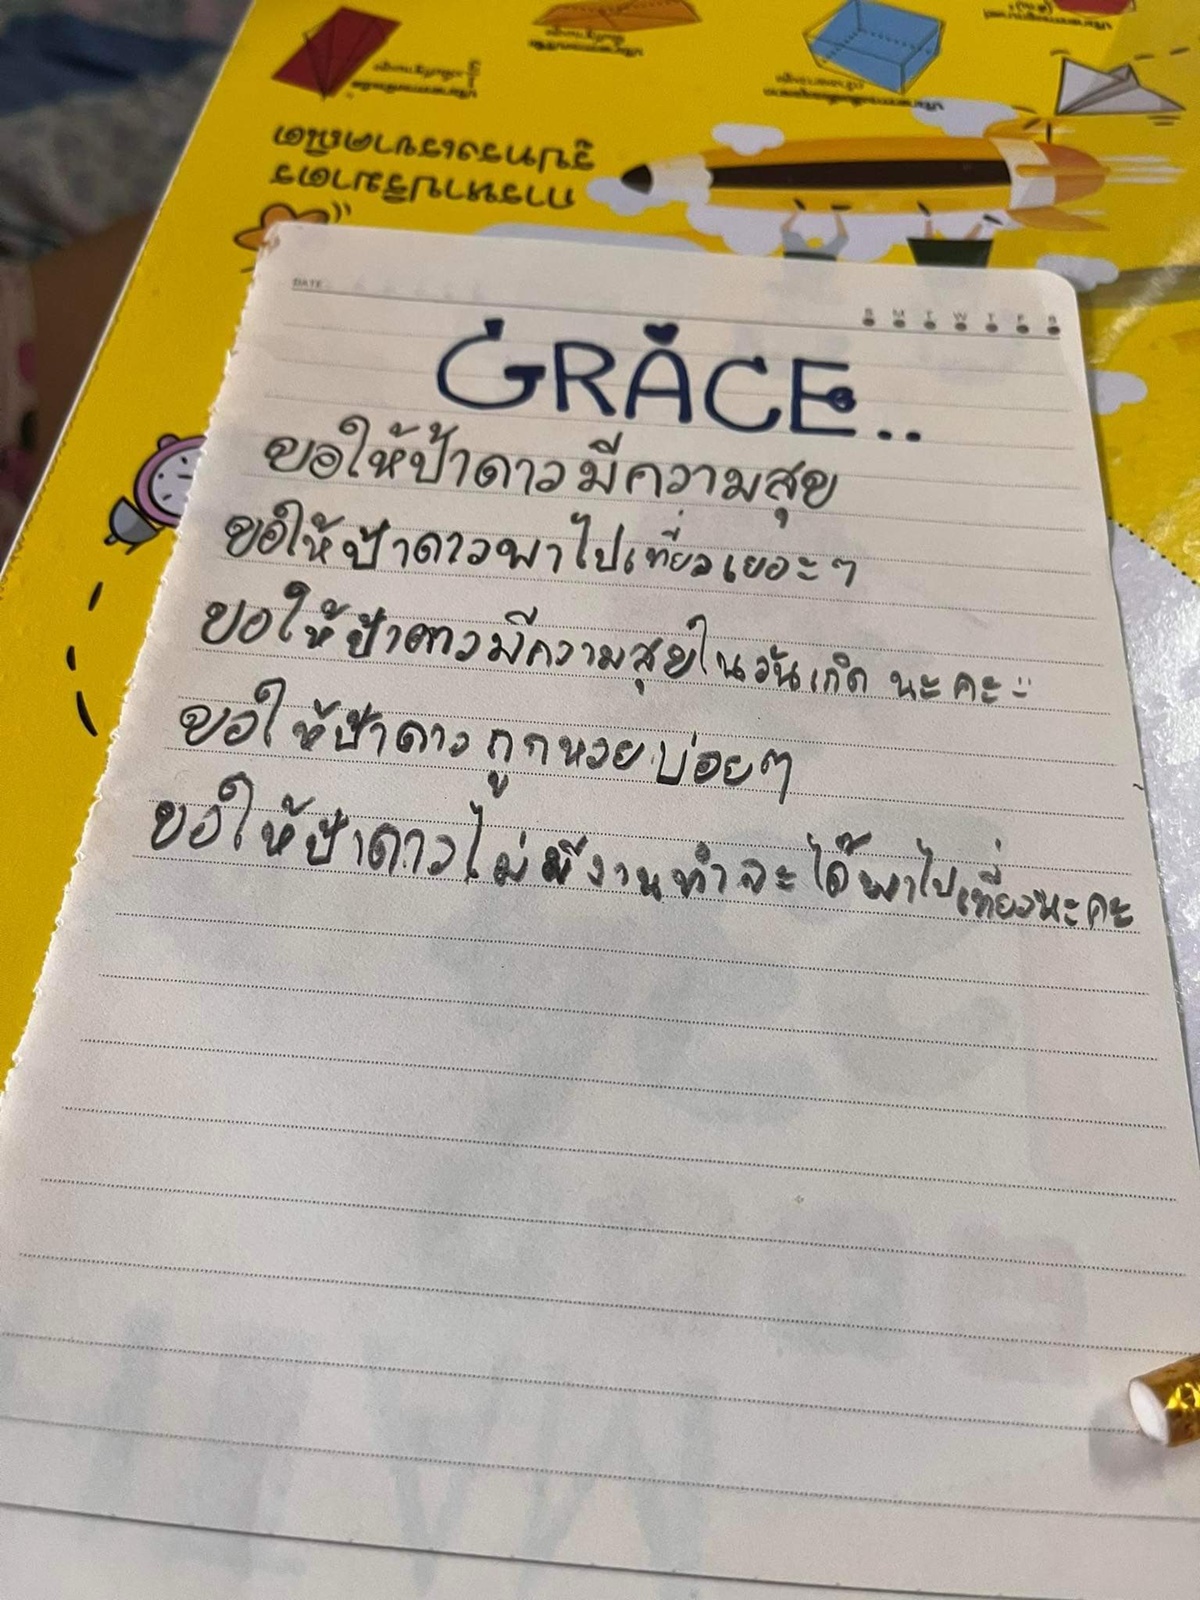 การหาปริมาตร
รูปทรงเรขาคณิต
DATE
S M T W T F S
GRACE..
ขอให้ป้าดาวมีความสุข
ขอให้ป้าดาวพาไปเที่ยวเยอะๆ
ขอให้ป้าดาวมีความสุขในวันเกิด นะคะ
ขอให้ป้าดาวถูกหวยบ่อยๆ
ขอให้ป้าดาวไม่มีงานทำจะได้พาไปเที่ยวนะคะ